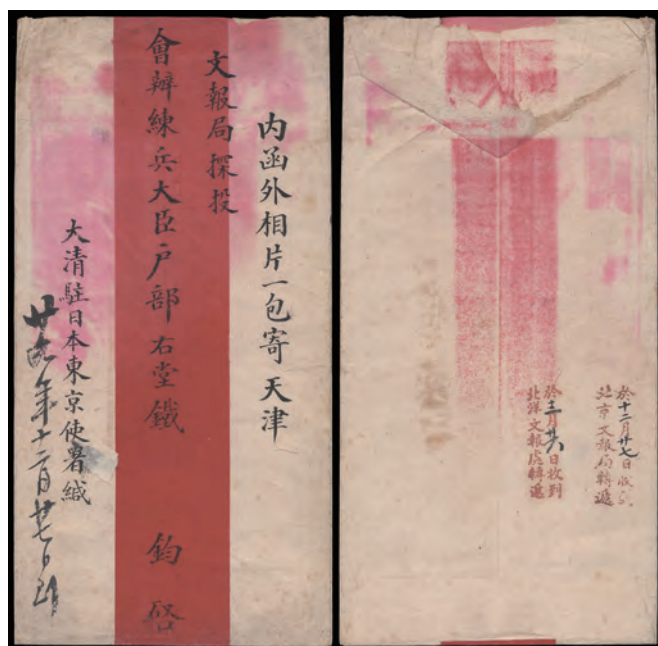 内函外相片一包寄 天津
文報局 探投
會辦練兵大臣戶部右堂鐵 鈞啓
大清駐日本東京使署緘
年十二月廿七日到
於十二月廿七日收到
北京文報局轉遞
於十二月廿六日收到
北洋文報處轉遞